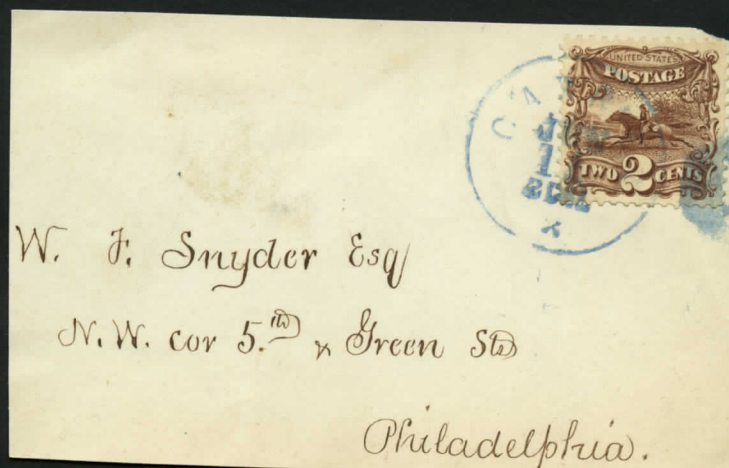 UNITED STATES
POSTAGE
TWO 2 CENTS
W. F. Snyder Esq
N.W. cor 5.th & Green Sts
Philadelphia.